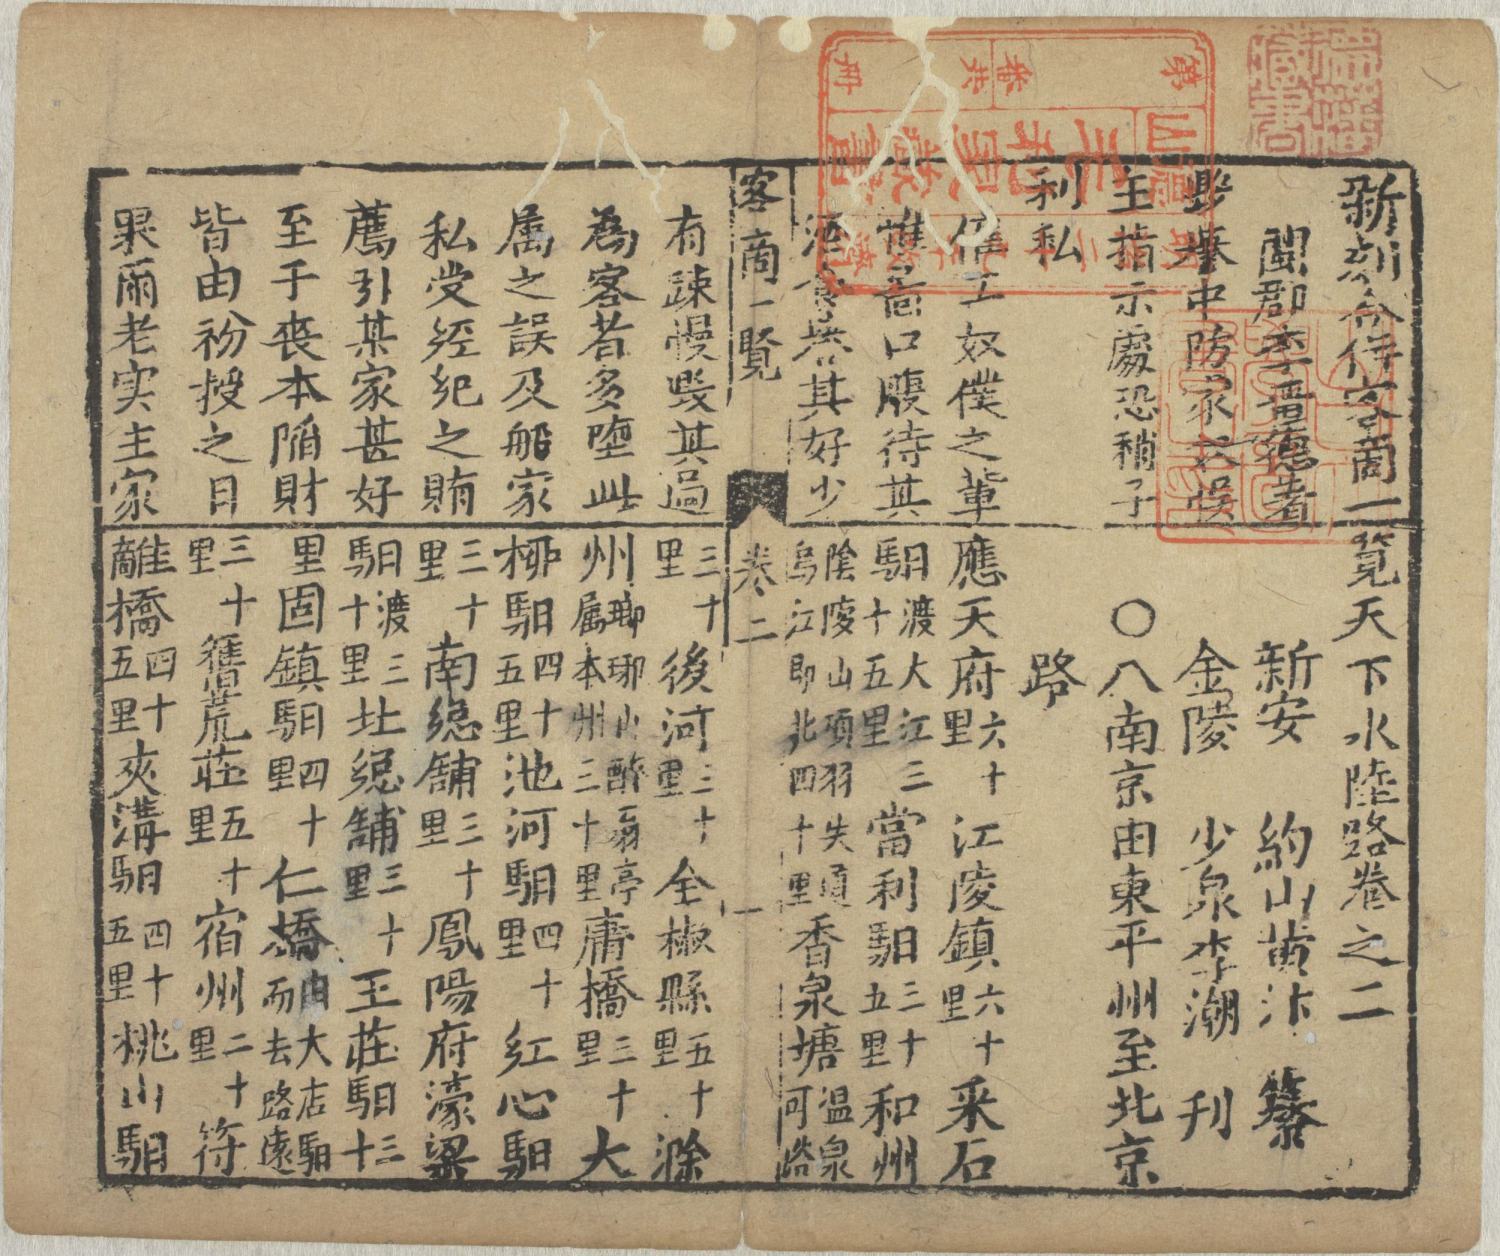 新刻合併客商一覽天下水陸路卷之二
閩郡李晋德著
新安 約山黃汴 纂
金陵 少泉李潮 刊
舉中防家人悞
主指示處恐稍子
利私
僱工奴僕之輩
惟啚口腹待其
酒食豈其好少
〇八南京由東平州至北京
路
應天府六十里江陵鎮六十里采石
馹渡大江三十五里當利馹三十五里和州
陰陵山項羽失道烏江即北四十里香泉塘温泉河路
客商一覽 卷二 一
有踈慢毁其過
為客者多墮此
属之誤及船家
私受經紀之賄
薦引某家甚好
至于喪本陥財
皆由初投之日
果爾老实主家
三十里後河三十里全椒縣五十里滁
州瑯琊山醉翁亭属本州三十里庸橋三十里大
柳馹四十五里池河馹四十里紅心馹
三十里南總舖三十里鳳陽府濠梁
馹渡三十里北總舖三十里王莊馹三十
里固鎮馹四十里仁橋由大店馹而去路遠
三十里舊荒莊五十里宿州二十里符
離橋四十五里夾溝馹四十五里桃山馹